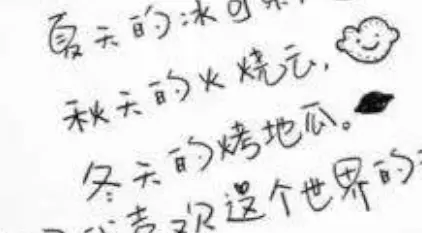 夏天的冰可乐
秋天的火烧云，
冬天的烤地瓜。
我喜欢这个世界的